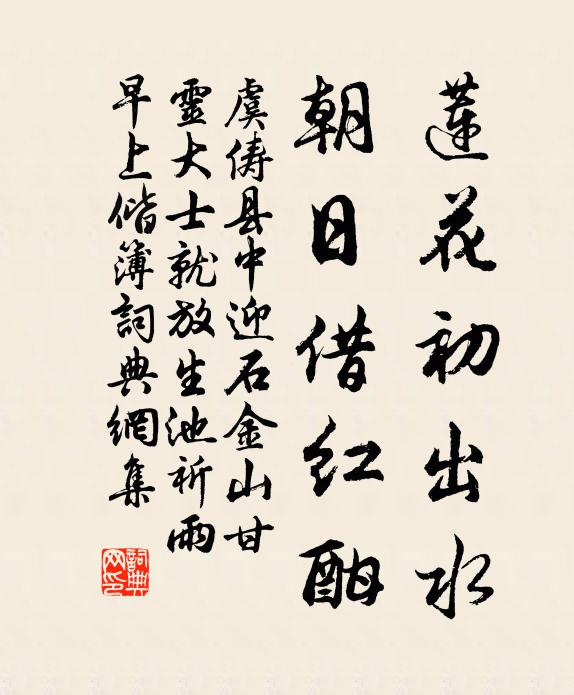 蓮花初出水
朝日借红酣
虞俦县中迎石金山甘
靈大士就放生池祈雨
早上偕簿詞典網集
詞典网印